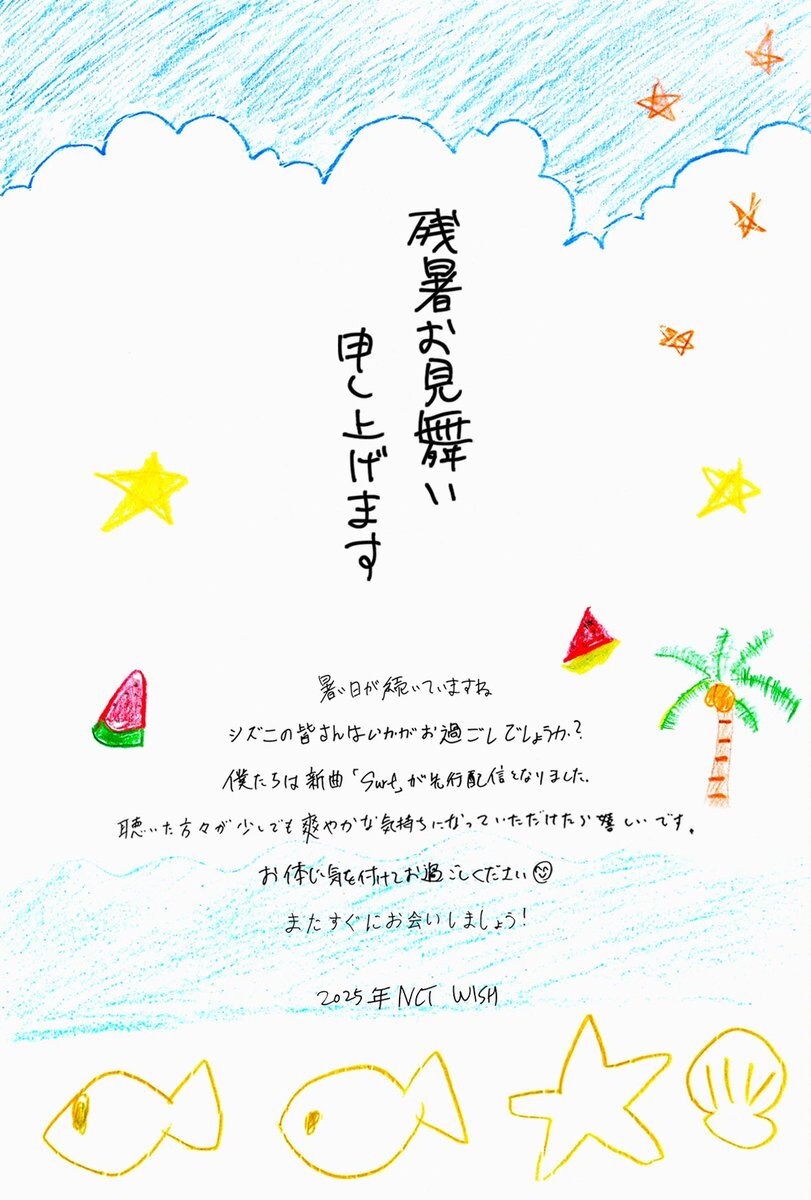 残暑お見舞い
申し上げます
暑い日が続いていますね
シズニの皆さんはいかがお過ごしでしょうか?
僕たちは新曲「Surf」が先行配信となりました.
聴いた方々が少しでも爽やかな気持ちになっていただけたら嬉しいです.
お体に気を付けてお過ごしください
またすぐにお会いしましょう!
2025年 NCT WISH